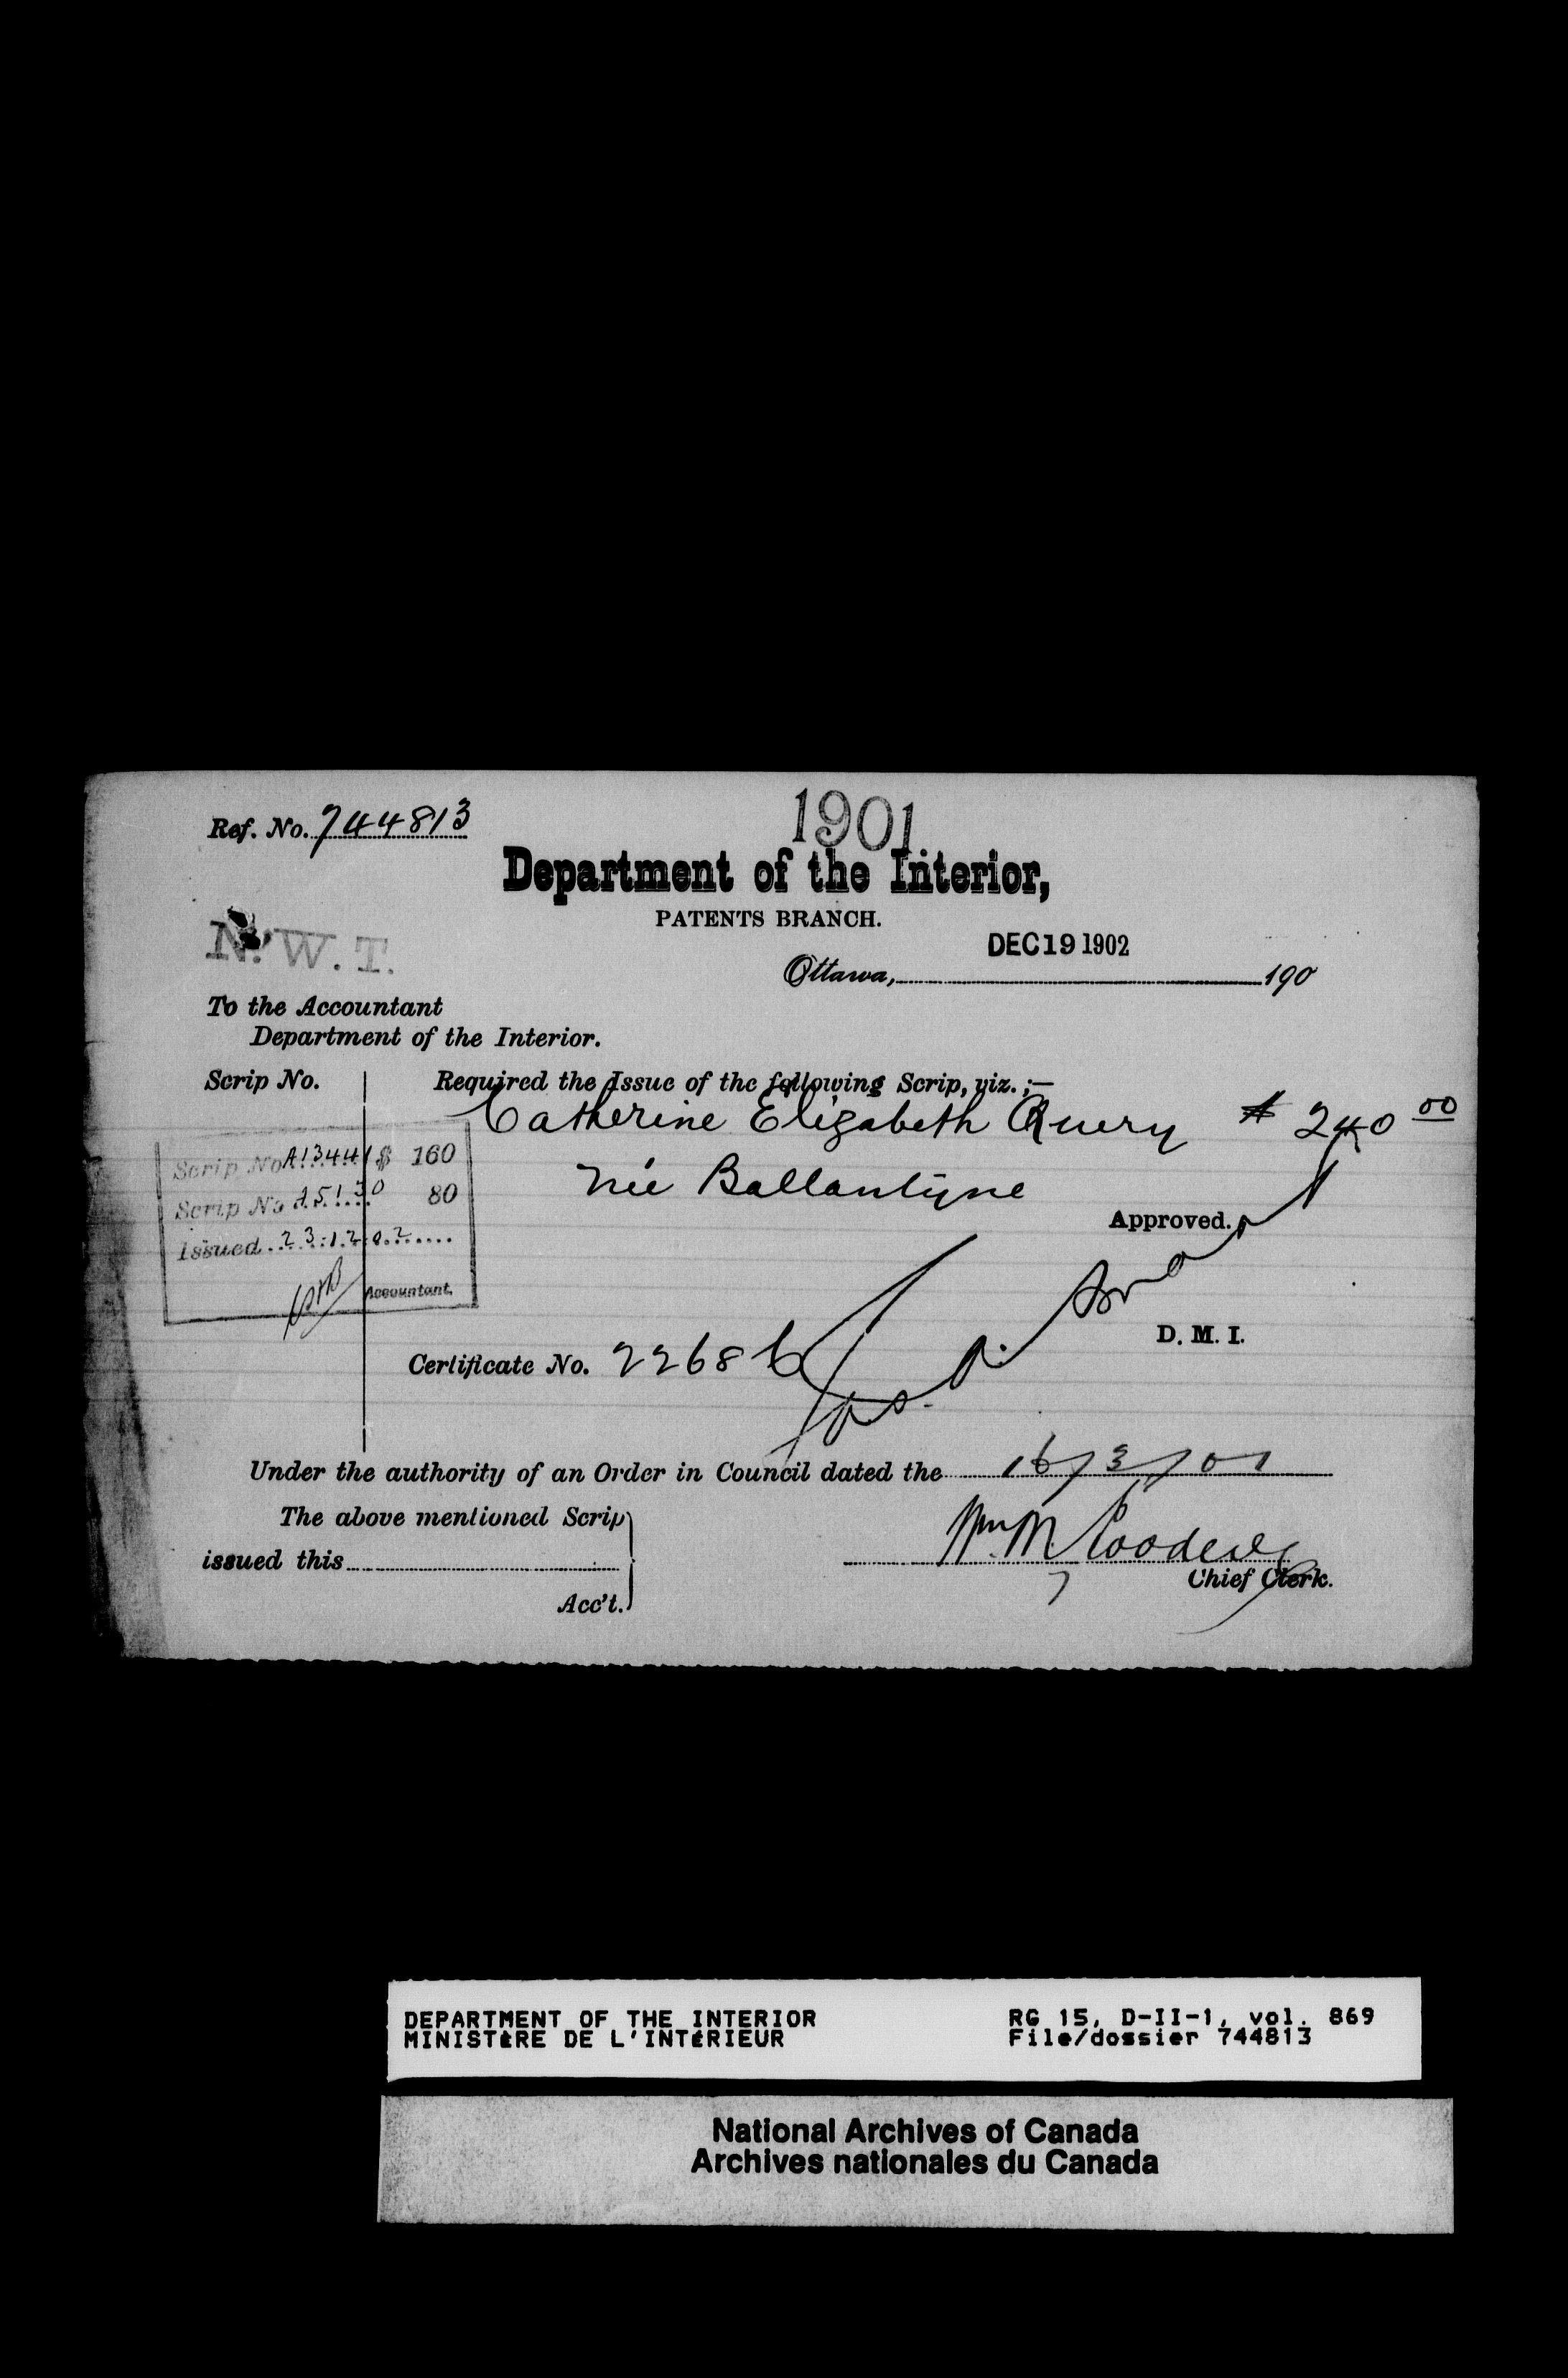 Ref. No. 744813
1901
Department of the Interior,
PATENTS BRANCH.
N.W.T.
DEC 19 1902
Ottawa, 190
To the Accountant
Department of the Interior.
Scrip No.
Required the Issue of the following Scrip, viz.;—
Catherine Elizabeth Query $ 240 00
née Ballantyne
Scrip No A13441 $ 160
Scrip No A5130 80
Issued 23.12.02
Accountant.
Approved.
D. M. I.
Certificate No. 2268 b
Jas. A.
Under the authority of an Order in Council dated the 16/3/01
The above mentioned Scrip
issued this
Acc't.
Wm M
Chief Clerk.
DEPARTMENT OF THE INTERIOR
MINISTÈRE DE L'INTÉRIEUR
RG 15, D-II-1, vol. 869
File/dossier 744813
National Archives of Canada
Archives nationales du Canada